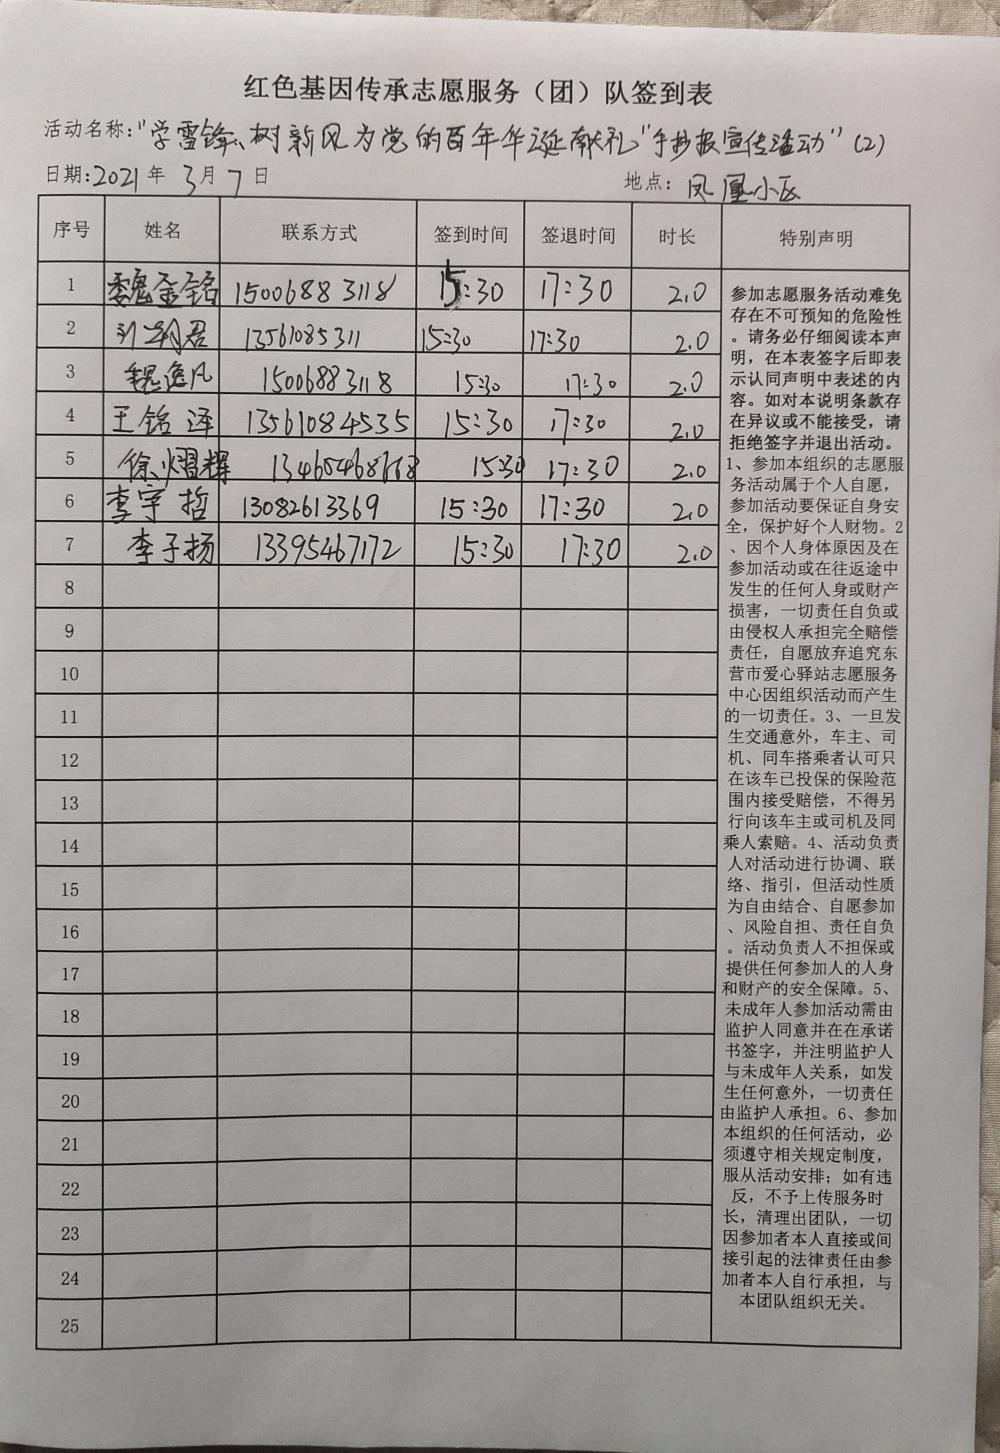 红色基因传承志愿服务（团）队签到表
活动名称："学雷锋、树新风为党的百年华诞献礼"手抄报宣传活动"（2）
日期:2021年3月7日 地点：凤凰小区
序号 姓名 联系方式 签到时间 签退时间 时长 特别声明
1 魏金铭 15006883118 15:30 17:30 2.0
2 明君 13561085311 15:30 17:30 2.0
3 魏逸凡 15006883118 15:30 17:30 2.0
4 王铭泽 13561084535 15:30 17:30 2.0
5 徐熠辉 15:30 17:30 2.0
6 李宇哲 13082613369 15:30 17:30 2.0
7 李子扬 13395467172 15:30 17:30 2.0
8
9
10
11
12
13
14
15
16
17
18
19
20
21
22
23
24
25
参加志愿服务活动难免
存在不可预知的危险性
。请务必仔细阅读本声
明，在本表签字后即表
示认同声明中表述的内
容。如对本说明条款存
在异议或不能接受，请
拒绝签字并退出活动。
1、参加本组织的志愿服
务活动属于个人自愿，
参加活动要保证自身安
全，保护好个人财物。2
、因个人身体原因及在
参加活动或在往返途中
发生的任何人身或财产
损害，一切责任自负或
由侵权人承担完全赔偿
责任，自愿放弃追究东
营市爱心驿站志愿服务
中心因组织活动而产生
的一切责任。3、一旦发
生交通意外，车主、司
机、同车搭乘者认可只
在该车已投保的保险范
围内接受赔偿，不得另
行向该车主或司机及同
乘人索赔。4、活动负责
人对活动进行协调、联
络、指引，但活动性质
为自由结合、自愿参加
、风险自担、责任自负
。活动负责人不担保或
提供任何参加人的人身
和财产的安全保障。5、
未成年人参加活动需由
监护人同意并在在承诺
书签字，并注明监护人
与未成年人关系，如发
生任何意外，一切责任
由监护人承担。6、参加
本组织的任何活动，必
须遵守相关规定制度，
服从活动安排；如有违
反，不予上传服务时
长，清理出团队，一切
因参加者本人直接或间
接引起的法律责任由参
加者本人自行承担，与
本团队组织无关。